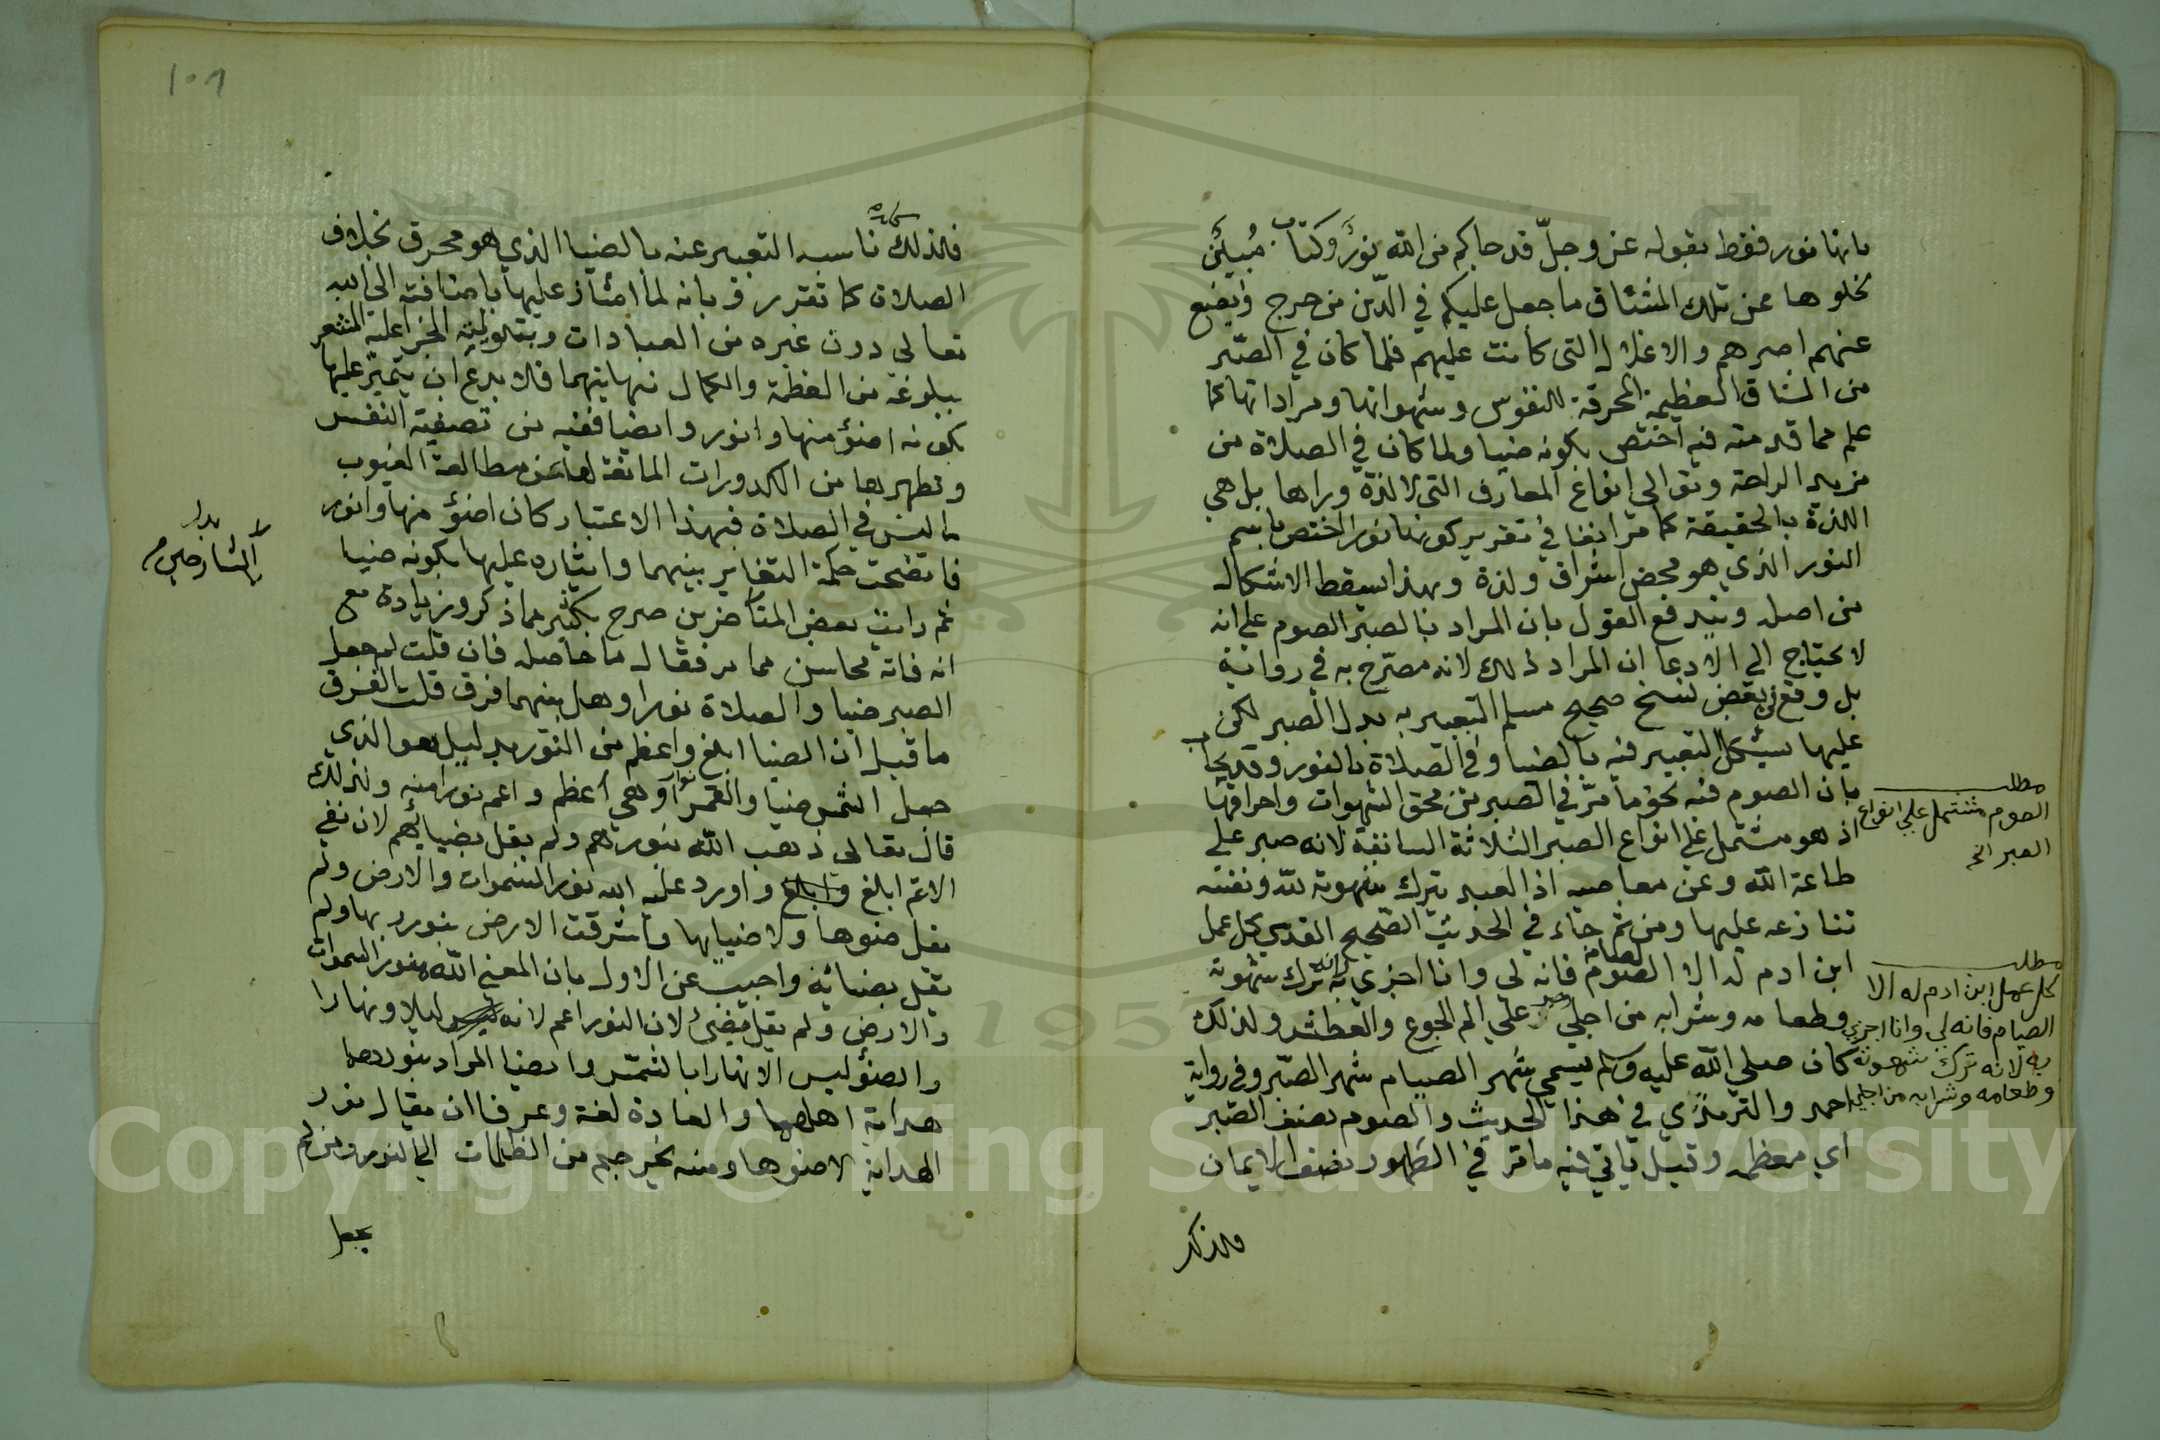 بانها نور فقط بقوله عز وجلّ قد جاكم من الله نورٌ وكتابٌ مُبينٌ
لخلوها عن تلك المشاق ما جعل عليكم في الدّين من حرج ويضع
عنهم اصرهم والاغلال التى كانت عليهم فلما كان في الصّبر
من المشاق العظيمة المحرقة للنفوس وشهواتها ومراداتها كما
علم مما قدمته فيه اختص بكونه ضيا ولما كان في الصلاة من
مزيد الراحة وتوالي انواع المعارف التى لا لذة وراها بل هي
اللذة بالحقيقة كما مر انفا في تقرير كونها نورا اختص باسم
النور الذي هو محض اشراق ولذة وبهذا يسقط الاشكال
من اصله ويندفع القول بان المراد بالصبر الصوم على انه
لا يحتاج الي الادعا ان المراد ذلك لانه مصرّح به في رواية
بل وقع في بعض نسخ صحيح مسلم التعبير به بدل الصبر لكن
عليها يشكل التعبير فيه بالضيا وفي الصلاة بالنور وقد يجاب
بان الصوم فيه نحو ما مرّ في الصبر من محق الشهوات واحراقها
اذ هو مشتمل علي انواع الصبر الثلاثة السابقة لانه صبر علي
طاعة الله وعن معاصيه اذ العبد يترك شهوته لله ونفسه
تنازعه عليها ومن ثم جاء في الحديث الصّحيح القدسي كل عمل
ابن ادم له الا الصيام فانه لي وانا اجزي به لانه ترك شهوته
وطعامه وشرابه من اجلي وصبر علي الم الجوع والعطش ولذلك
كان صلي الله عليه وسلم يسمي شهر الصيام شهر الصّبر وفي رواية
احمد والترمذي في هذا الحديث والصوم نصف الصّبر
اي معظمه وقيل ياتي فيه ما مر في الطهور نصف الايمان
فلذلك
مطلب
الصوم مشتمل علي انواع
الصبر الخ
مطلب
كل عمل ابن ادم له الا
الصيام فانه لي وانا اجزي
به لانه ترك شهوته
وطعامه وشرابه من اجلي
١٠٩
فلذلك ناسب التعبير عنه بالضيا الذي هو محرق بخلاف
الصلاة كما تقرر وبانه لما امتاز عليها باضافته الى الله
تعالي دون غيره من العبادات وبتوليه الجزا عليه المشعر
ببلوغه من العظمة والكمال نهايتهما فلا بدع ان يتميز عليها
بكونه اضؤ منها وانور وايضا ففيه من تصفية النفس
وتطهيرها من الكدورات المانعة لها عن مطالعة الغيوب
ما ليس في الصلاة فبهذا الاعتبار كان اضؤ منها وانور
فاتضحت حكمة التغاير بينهما وايثاره عليها بكونه ضيا
ثم رايت بعض المتاخرين صرح بكثير مما ذكر وزيادة مع
انه فاته محاسن مما مر فقال ما حاصله فان قلت لم جعل
الصبر ضيا والصلاة نورا وهل بينهما فرق قلت الفرق
ما قيل ان الضيا ابلغ واعظم من النور بدليل هو الذي
جعل الشمس ضيا والقمر نورا وهي اعظم واعم نورا منه ولذلك
قال تعالى ذهب الله بنورهم ولم يقل بضيائهم لان نفي
الاعم ابلغ واورد عليه الله نور السموات والارض ولم
يقل ضوها ولا ضياها واشرقت الارض بنور ربها ولم
يقل بضيائه واجيب عن الاول بان المعنى الله منور السموات
والارض ولم يقل مضئ لان النور اعم لانه ليلا ونهارا
والضؤ ليس الا نهارا بالشمس وايضا المراد بنورهما
هداية اهلهما والعادة لغة وعرفا ان يقال نور
الهداية لا ضوها ومنه يخرجهم من الظلمات الي النور ومن لم
يجعل
بدل
الشارحين